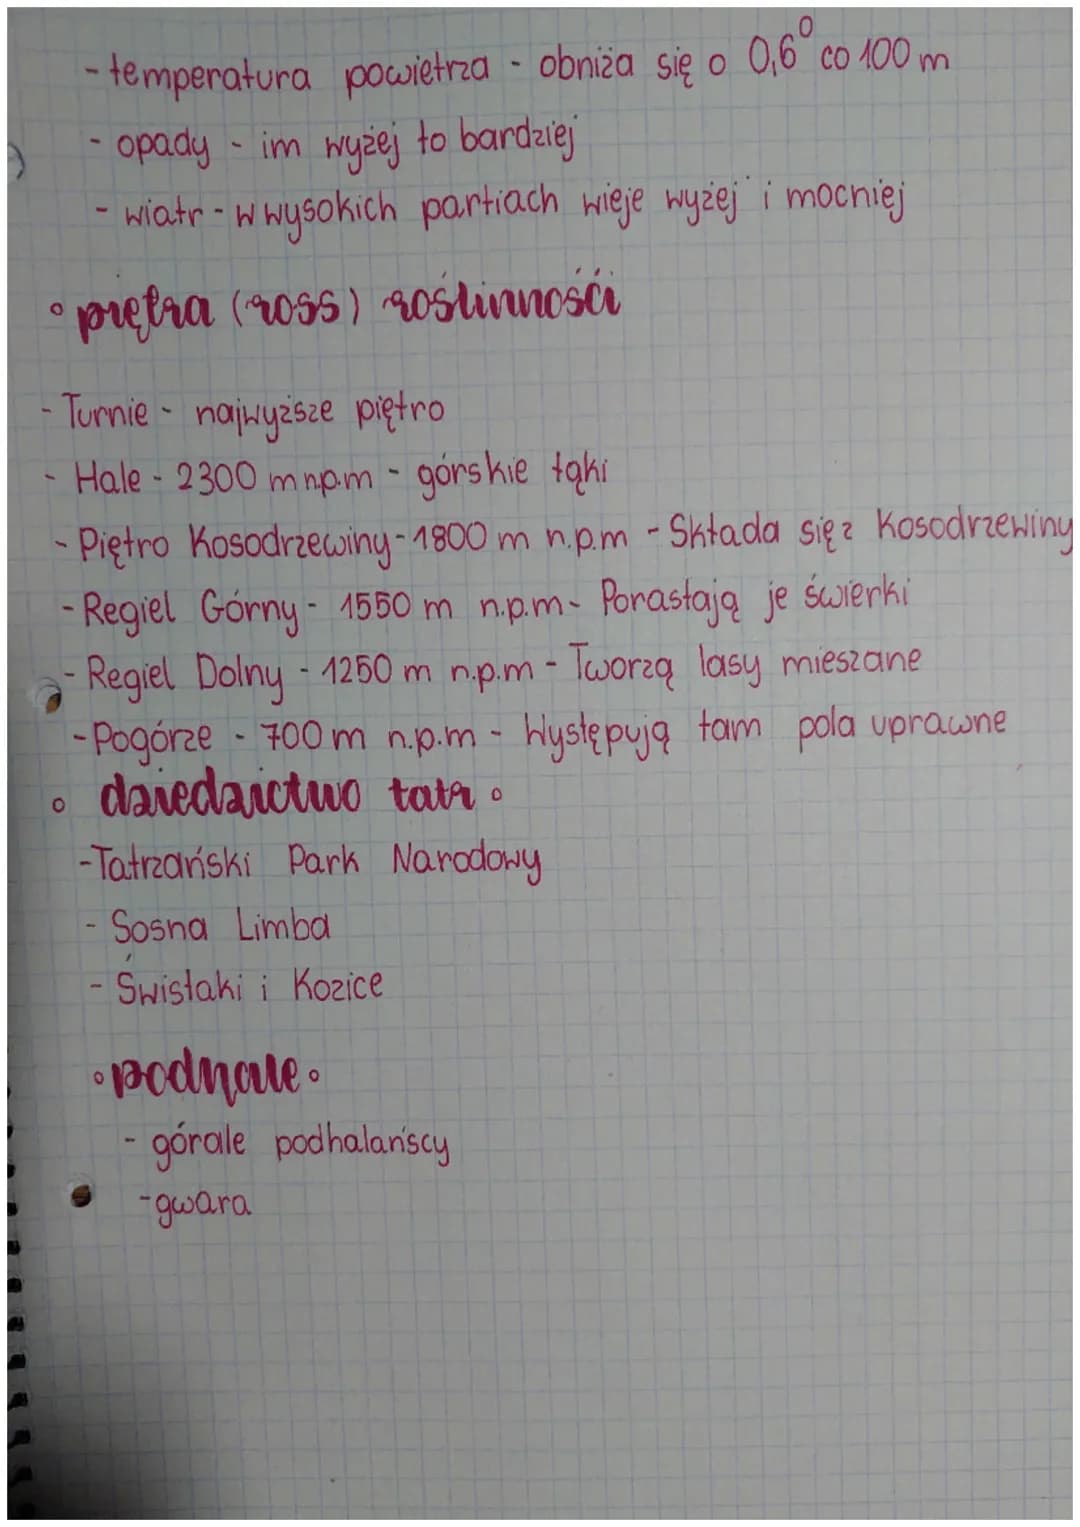 - temperatura powietrza - obniża się o 0,6° co 100 m
- opady - im wyżej to bardziej
- wiatr - w wysokich partiach wieje wyżej i mocniej
° piętra (ross) roślinności
- Turnie - najwyższe piętro
- Hale - 2300 m n.p.m - górskie łąki
- Piętro Kosodrzewiny - 1800 m n.p.m - Składa się z Kosodrzewiny
- Regiel Górny - 1550 m n.p.m - Porastają je świerki
- Regiel Dolny - 1250 m n.p.m - Tworzą lasy mieszane
- Pogórze - 700 m n.p.m - Występują tam pola uprawne
° dziedzictwo tatr °
- Tatrzański Park Narodowy
- Sosna Limba
- Świstaki i Kozice
° podhale °
- górale podhalańscy
- gwara